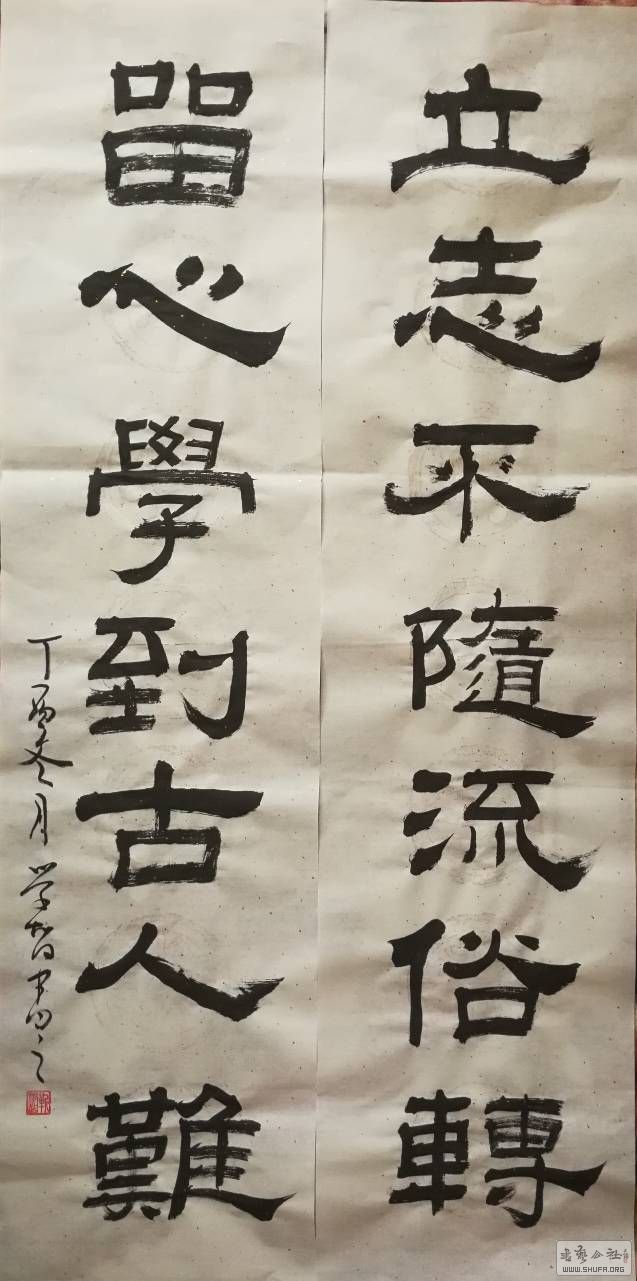 立志不隨流俗轉
畱心學到古人難
丁酉冬月學智書之
WWW.SHUFA.ORG